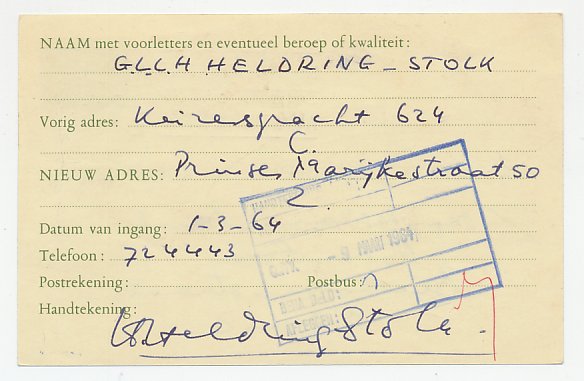 NAAM met voorletters en eventueel beroep of kwaliteit:
G.L.L.H HELDRING - STOLK
Vorig adres: Keizersgracht 624
C.
NIEUW ADRES: Prinses Marijkestraat 50
Z.
Datum van ingang: 1-3-64
Telefoon: 724443
Postrekening: Postbus:
Handtekening:
Heldring Stolk